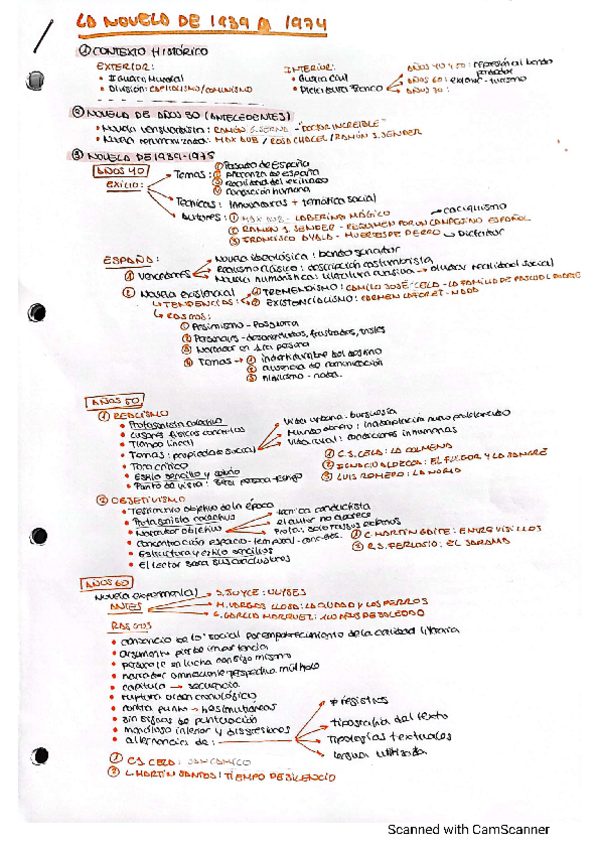 LA NOVELA DE 1939 A 1974
① CONTEXTO HISTÓRICO
EXTERIOR:
• II Guerra Mundial
• División: CAPITALISMO/COMUNISMO
INTERIOR:
• Guerra Civil
• Dictadura Franco
AÑOS 40 Y 50: represión al bando perdedor
AÑOS 60: turismo
AÑOS 70:
② NOVELA DE AÑOS 30 (ANTECEDENTES)
• Novela vanguardista: RAMÓN G. SERNA - "DOCTOR INCREIBLE"
• Novela MAX AUB / ROSA CHACEL / RAMÓN J. SENDER
③ NOVELA DE 1939-1975
AÑOS 40
EXILIO:
Temas:
① Pasado de España
② de España
③ del exiliado
④ Condición humana
Técnicas: Innovadoras + temática social
Autores: ① MAX AUB - LABERINTO MÁGICO
② RAMÓN J. SENDER - REQUIEM POR UN CAMPESINO ESPAÑOL → caciquismo
③ FRANCISCO AYALA - MUERTES DE PERRO → Dictador
ESPAÑA:
① Vencedores
Novela ideológica: bando ganador
Realismo clásico: descripción costumbrista
Novela humorística: literatura evasiva → olvidar realidad social
② Novela existencial
↳ TENDENCIAS: ① TREMENDISMO: CAMILO JOSÉ CELA - LA FAMILIA DE PASCUAL DUARTE
② EXISTENCIALISMO: CARMEN LAFORET - NADA
↳ RASGOS:
① Pesimismo -
② Personajes - desorientados, frustrados, tristes
③ Narrador en 1era persona
④ Temas → ① incertidumbre del destino
② ausencia de comunicación
③ - nada.
AÑOS 50
① REALISMO
• Protagonista colectivo
• Lugares físicos concretos
• Tiempo lineal
• Temas: propiedad social
• Tono crítico
• Estilo sencillo y sobrio
• Punto de vista: 3era persona
Vida urbana: burguesía
Mundo obrero: inadaptación nuevo proletariado
Vida rural: condiciones inhumanas
① C.J. CELA: LA COLMENA
② IGNACIO ALDECOA: EL FULGOR Y LA SANGRE
③ LUIS ROMERO: LA NORIA
② OBJETIVISMO
• Testimonio objetivo de la época
• Protagonista colectivo
• Narrador objetivo
• Concentración espacio-temporal - concretos.
• Estructura y estilo sencillos
• El lector saca sus conclusiones
técnica conductista
el autor no aparece
① C. MARTÍN GAITE: ENTRE VISILLOS
② R.S. FERLOSIO: EL JARAMA
AÑOS 60
Novela experimental
ANTES
J. JOYCE: ULYSES
M. VARGAS LLOSA: LA CIUDAD Y LOS PERROS
G. GARCIA MARQUEZ: 100 AÑOS DE SOLEDAD
RASGOS
• cansancio de lo social por empobrecimiento de la calidad literaria
• argumento pierde importancia
• personaje en lucha consigo mismo
• narrador omnisciente perspectiva múltiple
• capítulo → secuencia
• ruptura orden cronológico
• contra punto →
• sin signos de puntuación
• monólogo interior y disgresiones
• alternancia de:
≠ registros
tipografía del texto
Tipologías textuales
lengua utilizada
① C.J. CELA: SAN CAMILO
② L. MARTIN SANTOS: TIEMPO DE SILENCIO
Scanned with CamScanner